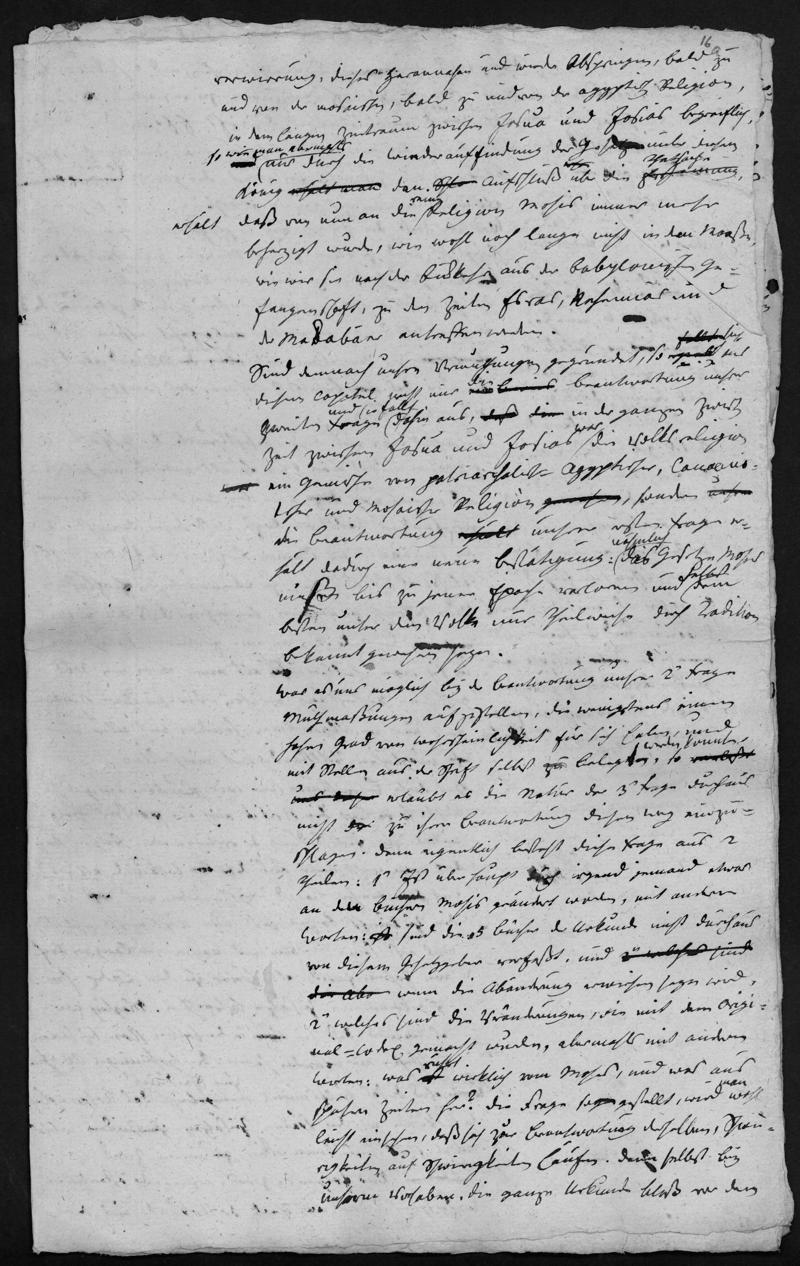 16
verwirrung, dieses herannahen und wieder Abspringen, bald zu
und von der mosaischen, bald zu und von der ägyptisch Religion,
in dem langen Zeitraum zwischen Josua und Josias begreiflich,
so wie man abermals
nur durch die wiederauffindung der Gesetze unter diesem
König erhält man den Aufschluß über die Thatsache
erhält daß von nun an die Religion Mosis immer mehr
beherzigt wurde, wie wohl noch lange nicht in dem Maaße,
wie wir sie nach der Rükkehr aus der babylonischen Ge=
fangenschaft, zu den Zeiten Esras, Nehemias und
der Makabäer antreffen werden.
Sind demnach unsere Vermuthungen gegründet, so
diesem Capitel, nicht nur die beantwortung unserer
zweiten Frage dahin aus, daß die in der ganzen
Zeit zwischen Josua und Josias war die Volksreligion
ein Gemische von patriarchalisch= ägyptischer, Canaani=
tischer und Mosaischer Religion, sondern
die beantwortung unserer ersten Frage er=
hält dadurch eine neue bestätigung: das Gesetz Mosis
müßte bis zu jener Epoche verloren und selbst dem
besten unter dem Volke nur theilweise durch Tradition
bekannt gewesen seyn.
War es uns möglich bey der beantwortung unserer 2n Frage
Muthmaßungen aufzustellen, die wenigstens einen
hohen Grad von wahrscheinlichkeit für sich haben, und
mit Stellen aus der Schrift selbst belegt werden konnten, so
erlaubt es die Natur der 3n Frage durchaus
nicht zu ihrer beantwortung diesen weg einzu=
schlagen. denn eigentlich besteht diese Frage aus 2
Theilen: 1n Ist überhaupt durch irgend jemand etwas
an den büchern Mosis geändert worden, mit andern
worten: sind die 5 bücher der Urkunde nicht durchaus
von diesem Gesetzgeber verfaßt, und 2n welches sind
die Abä wenn die Abänderung erwiesen seyn wird,
2n welches sind die Veränderungen, die mit dem Origi=
nal=Codex gemacht wurden, abermahls mit andern
worten: was ist wirklich vom Moses, und was aus
spätern Zeiten her? die Frage so gestellt, wird man wohl
leicht einsehen, daß sich zur beantwortung derselben, Schwie=
rigkeiten auf Schwierigkeiten häufen. denn selbst bey
unserem Vorhaben, die ganze Urkunde bloß vor dem